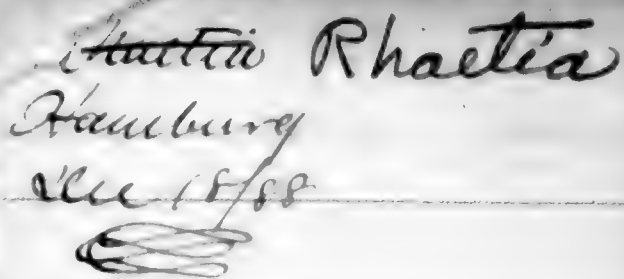 Rhaetia
Hamburg
Dec 18/88